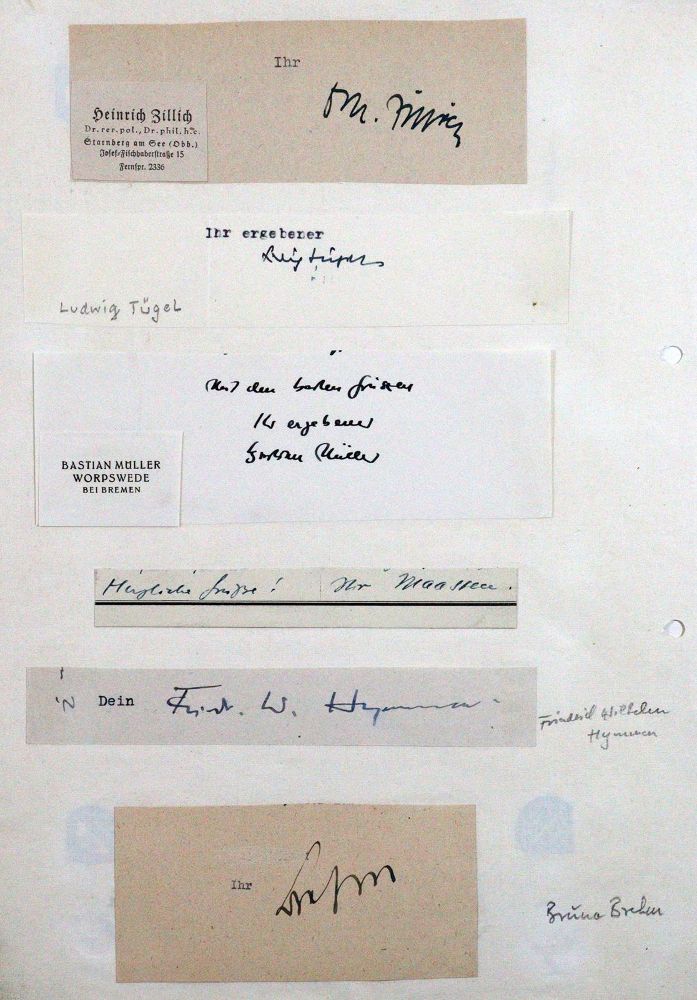 Ihr
H. Zillich
Heinrich Zillich
Dr. rer. pol., Dr. phil. h.c.
Starnberg am See (Obb.)
Josef-Fischhaberstraße 15
Fernspr. 2336
Ihr ergebener
Ludwig Tügel
Ludwig Tügel
Mit den besten Grüssen
Ihr ergebener
Bastian Müller
BASTIAN MÜLLER
WORPSWEDE
BEI BREMEN
Herzliche Grüße! Ihr Maassen.
Dein Friedr. W. Hymmen.
Friedrich Wilhelm
Hymmen
Ihr Brehm
Bruno Brehm